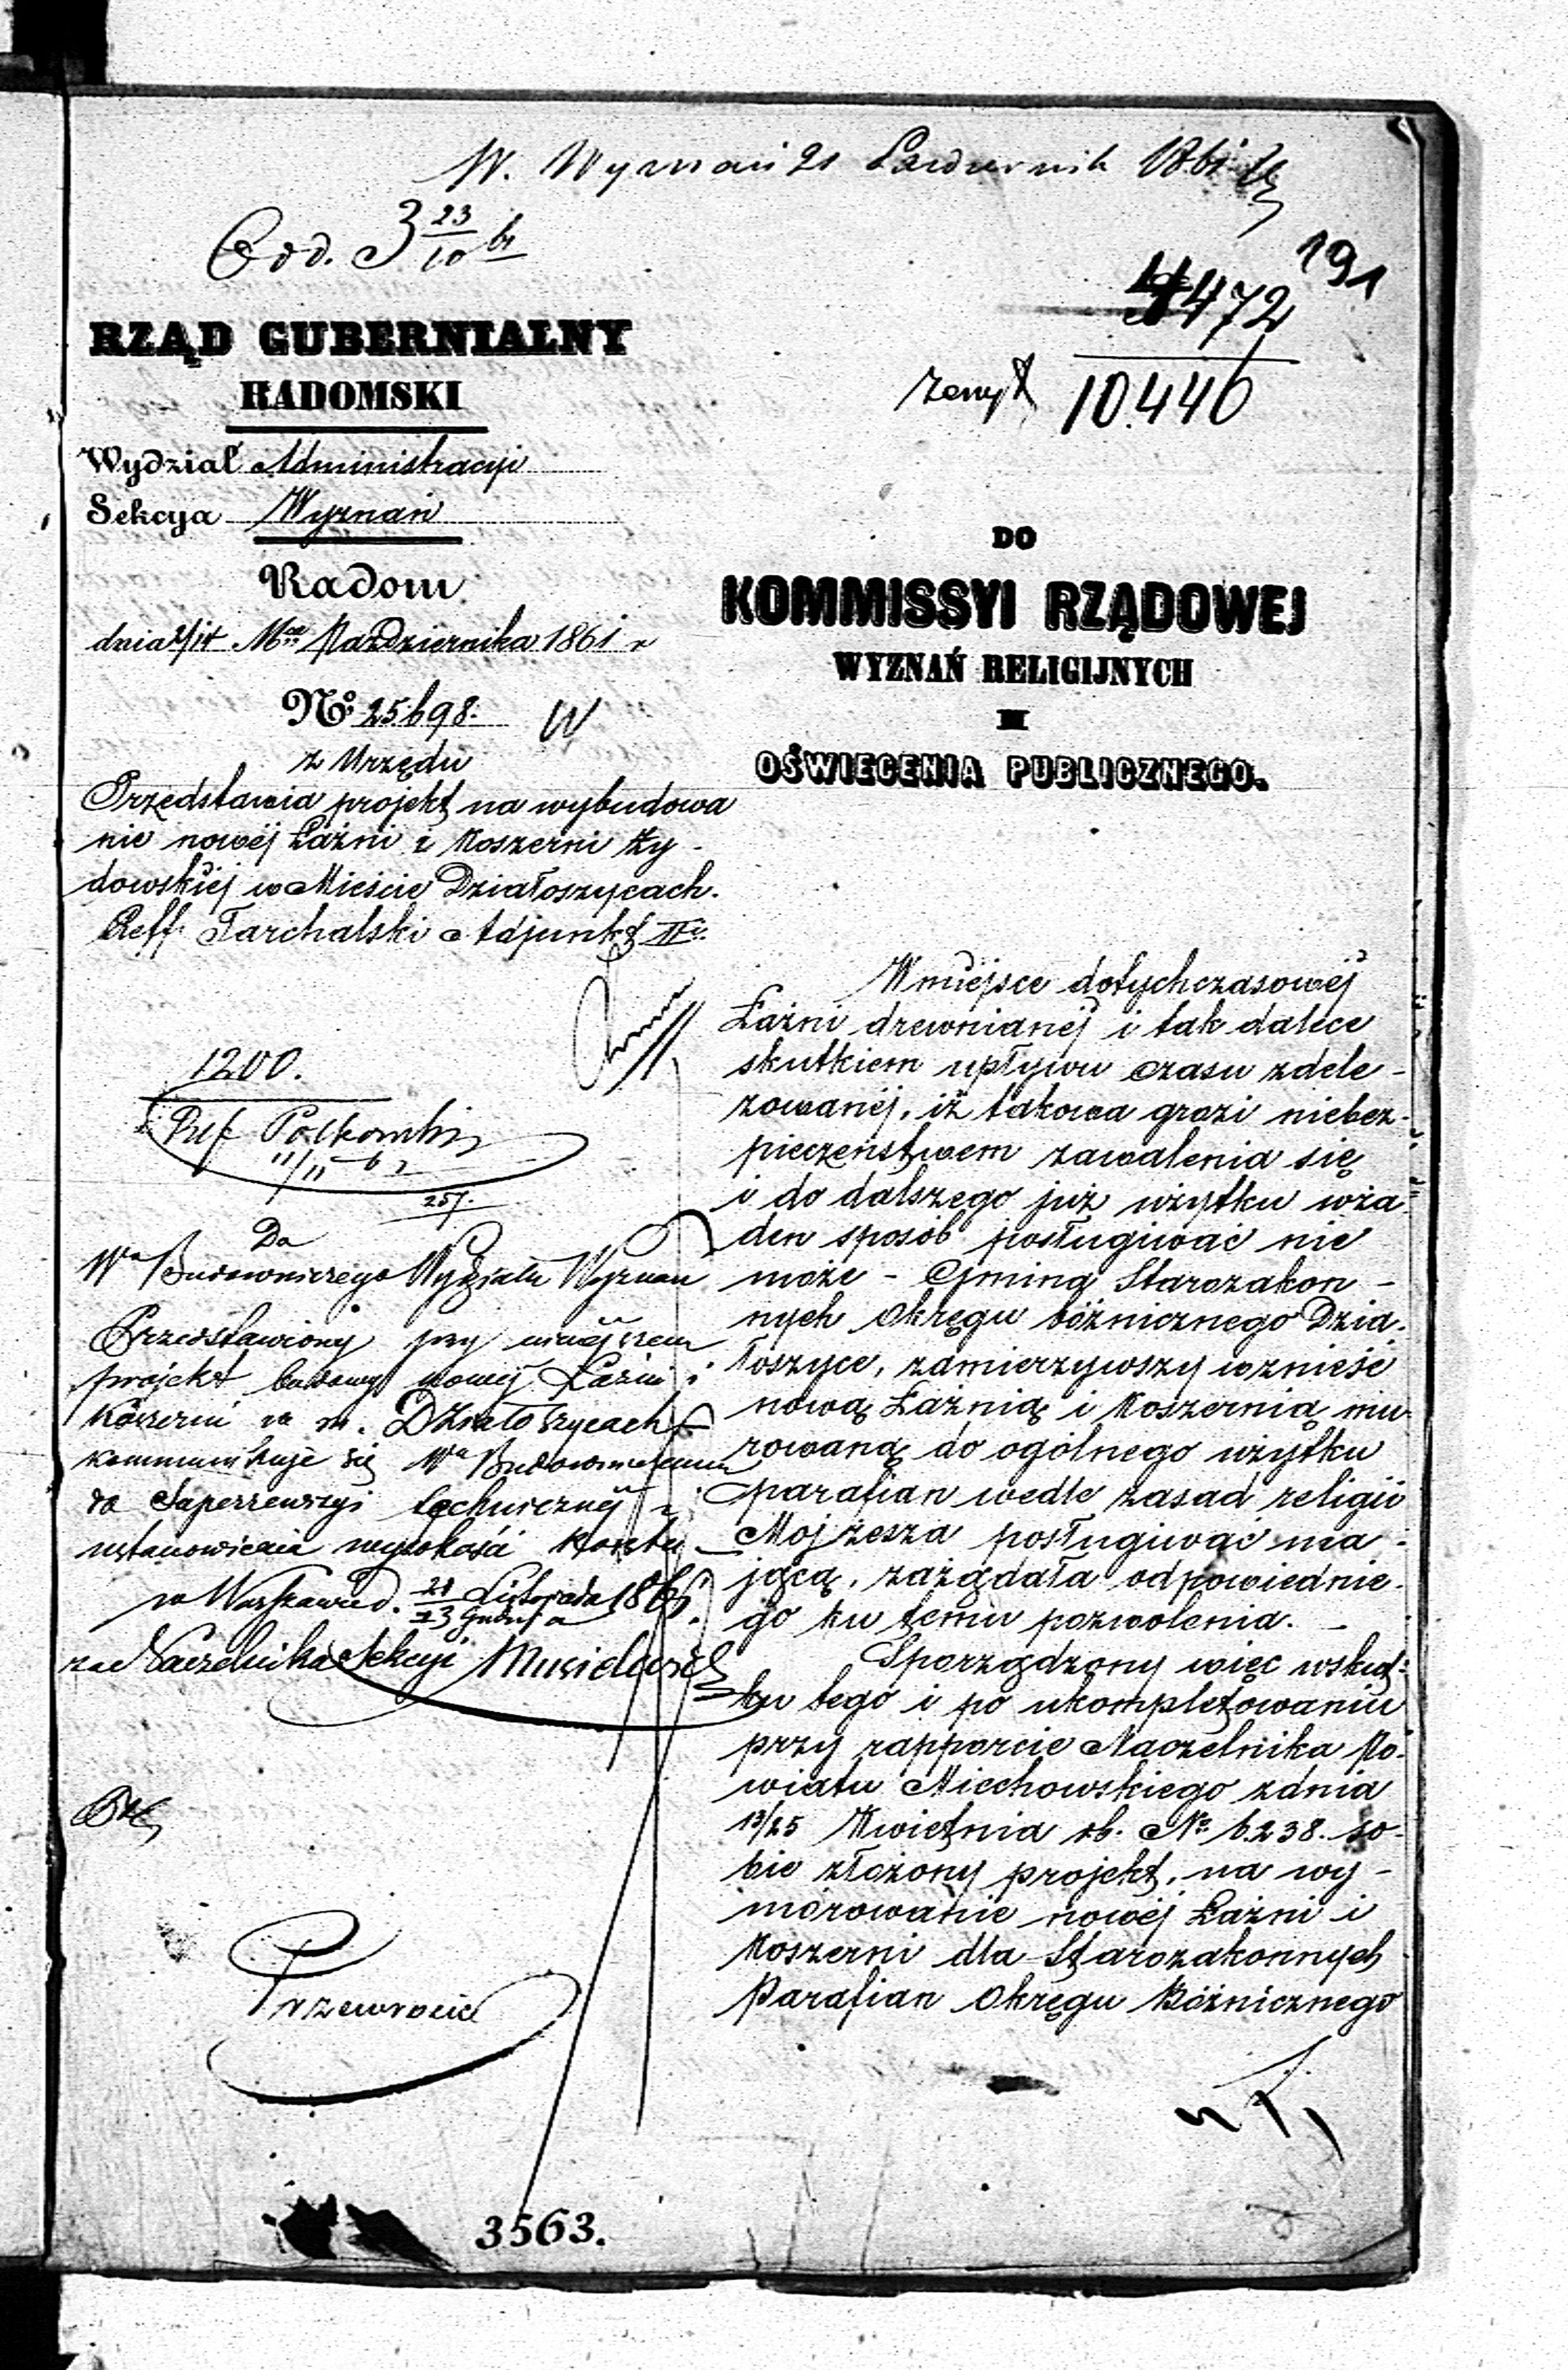 W. Wyznań 21 Październik 1861
Odd. 3 23/10 61
191
4472
10.446
RZĄD GUBERNIALNY
RADOMSKI
Wydział Administracyi
Sekcya Wyznań
Radom
dnia 2/14 Mca Października 1861 r
No 25.698. W
z Urzędu
Przedstawia projekt na wybudowa
nie nowéj Łaźni i Koszerni ży-
dowskiéj w Mieście Działoszycach.
Reff. Tarchalski Adjunkt II
1200.
11/11
257.
Do
Wo Budowniczego Wydziału Wyznań
Przedstawiony przy niniejszem
projekt budowy nowéj Łaźni i
Koszerni w m. Działoszycach
kommunikuje się Wu Budowniczemu
do Superrewizyi technicznéj i
ustanowienia wysokości kosztu
w Warszawie d. Listopada Grudnia 186
za Naczelnika Sekcyi
3563.
DO
KOMMISSYI RZĄDOWEJ
WYZNAŃ RELIGIJNYCH
I
OŚWIECENIA PUBLICZNEGO.
W miejsce dotychczasowéj
Łaźni drewnianéj i tak dalece
skutkiem upływu czasu zdele-
zowanéj, iż takowa grozi niebez-
pieczeństwem zawalenia się
i do dalszego już użytku w ża
den sposób posługiwać nie
może – Gmina Starozakon-
nych Okręgu bóżnicznego Dzia-
łoszyce, zamierzywszy wznieść
nową Łaźnią i Koszernią mu-
rowaną do ogólnego użytku
parafian wedle zasad religii
Mojżesza posługiwać ma-
jącą, zażądała odpowiednie-
go ku temu pozwolenia. –
Sporządzony więc wskut-
ku tego i po ukompletowaniu
przy rapporcie Naczelnika Po-
wiatu Miechowskiego z dnia
13/25 Kwietnia rb. No 6.238. so-
bie złożony projekt, na wy-
murowanie nowéj Łaźni i
Koszerni dla Starozakonnych
Parafian Okręgu Bóżnicznego